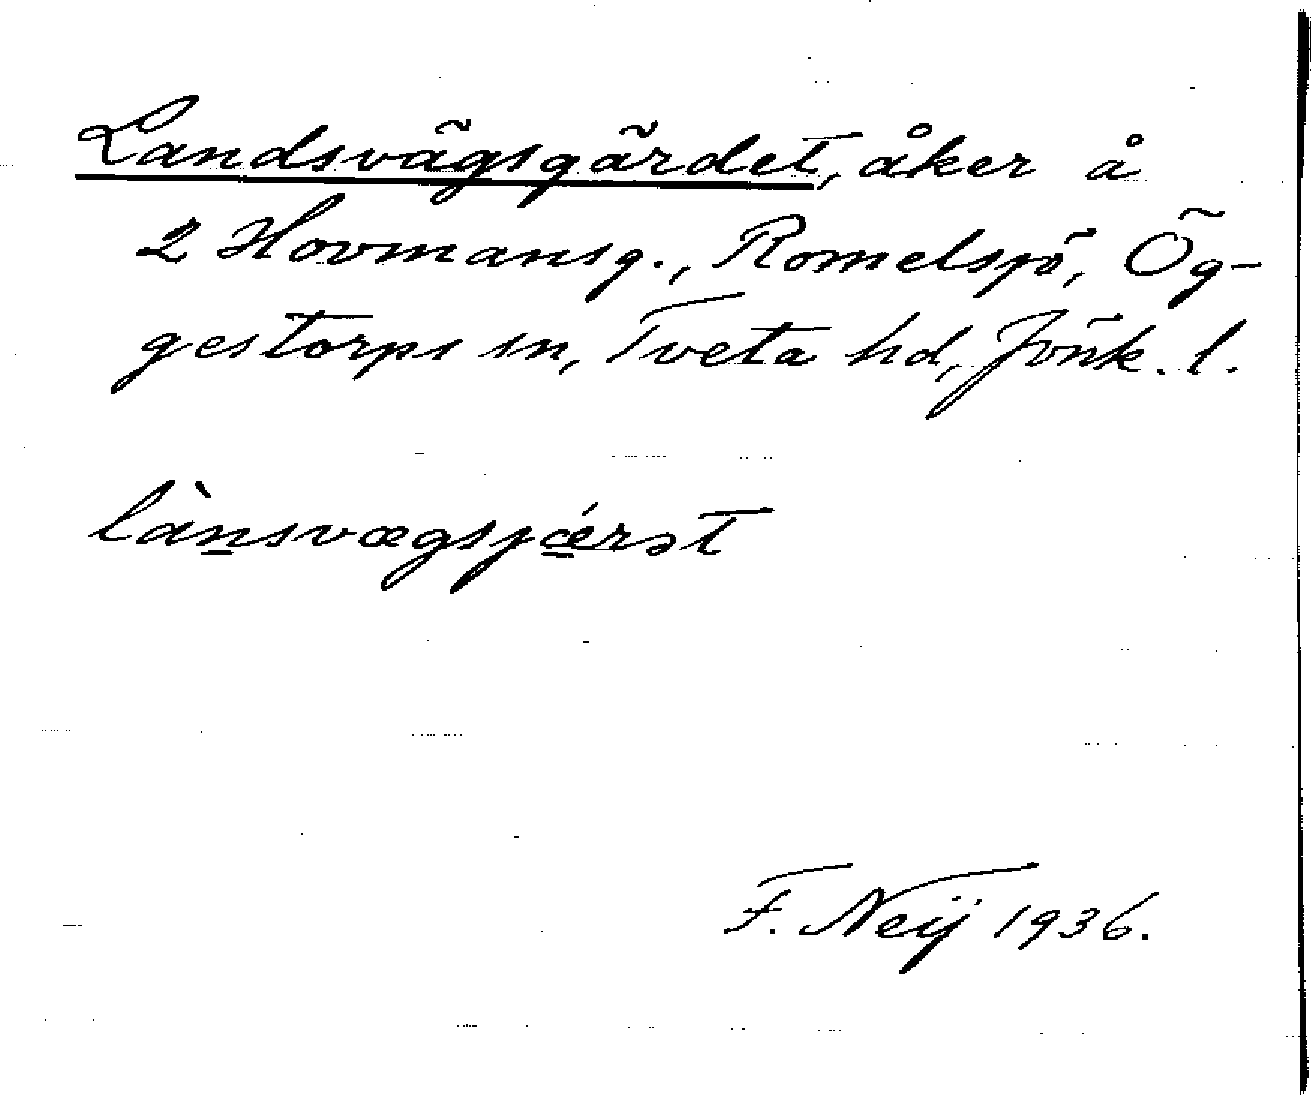 Landsvägsgärdet, åker å
2 Hovmansg., Romelsjö, Ög-
gestorps sn, Tveta hd, Jönk. l.
lànsvægsjǽrət
F. Neij 1936.